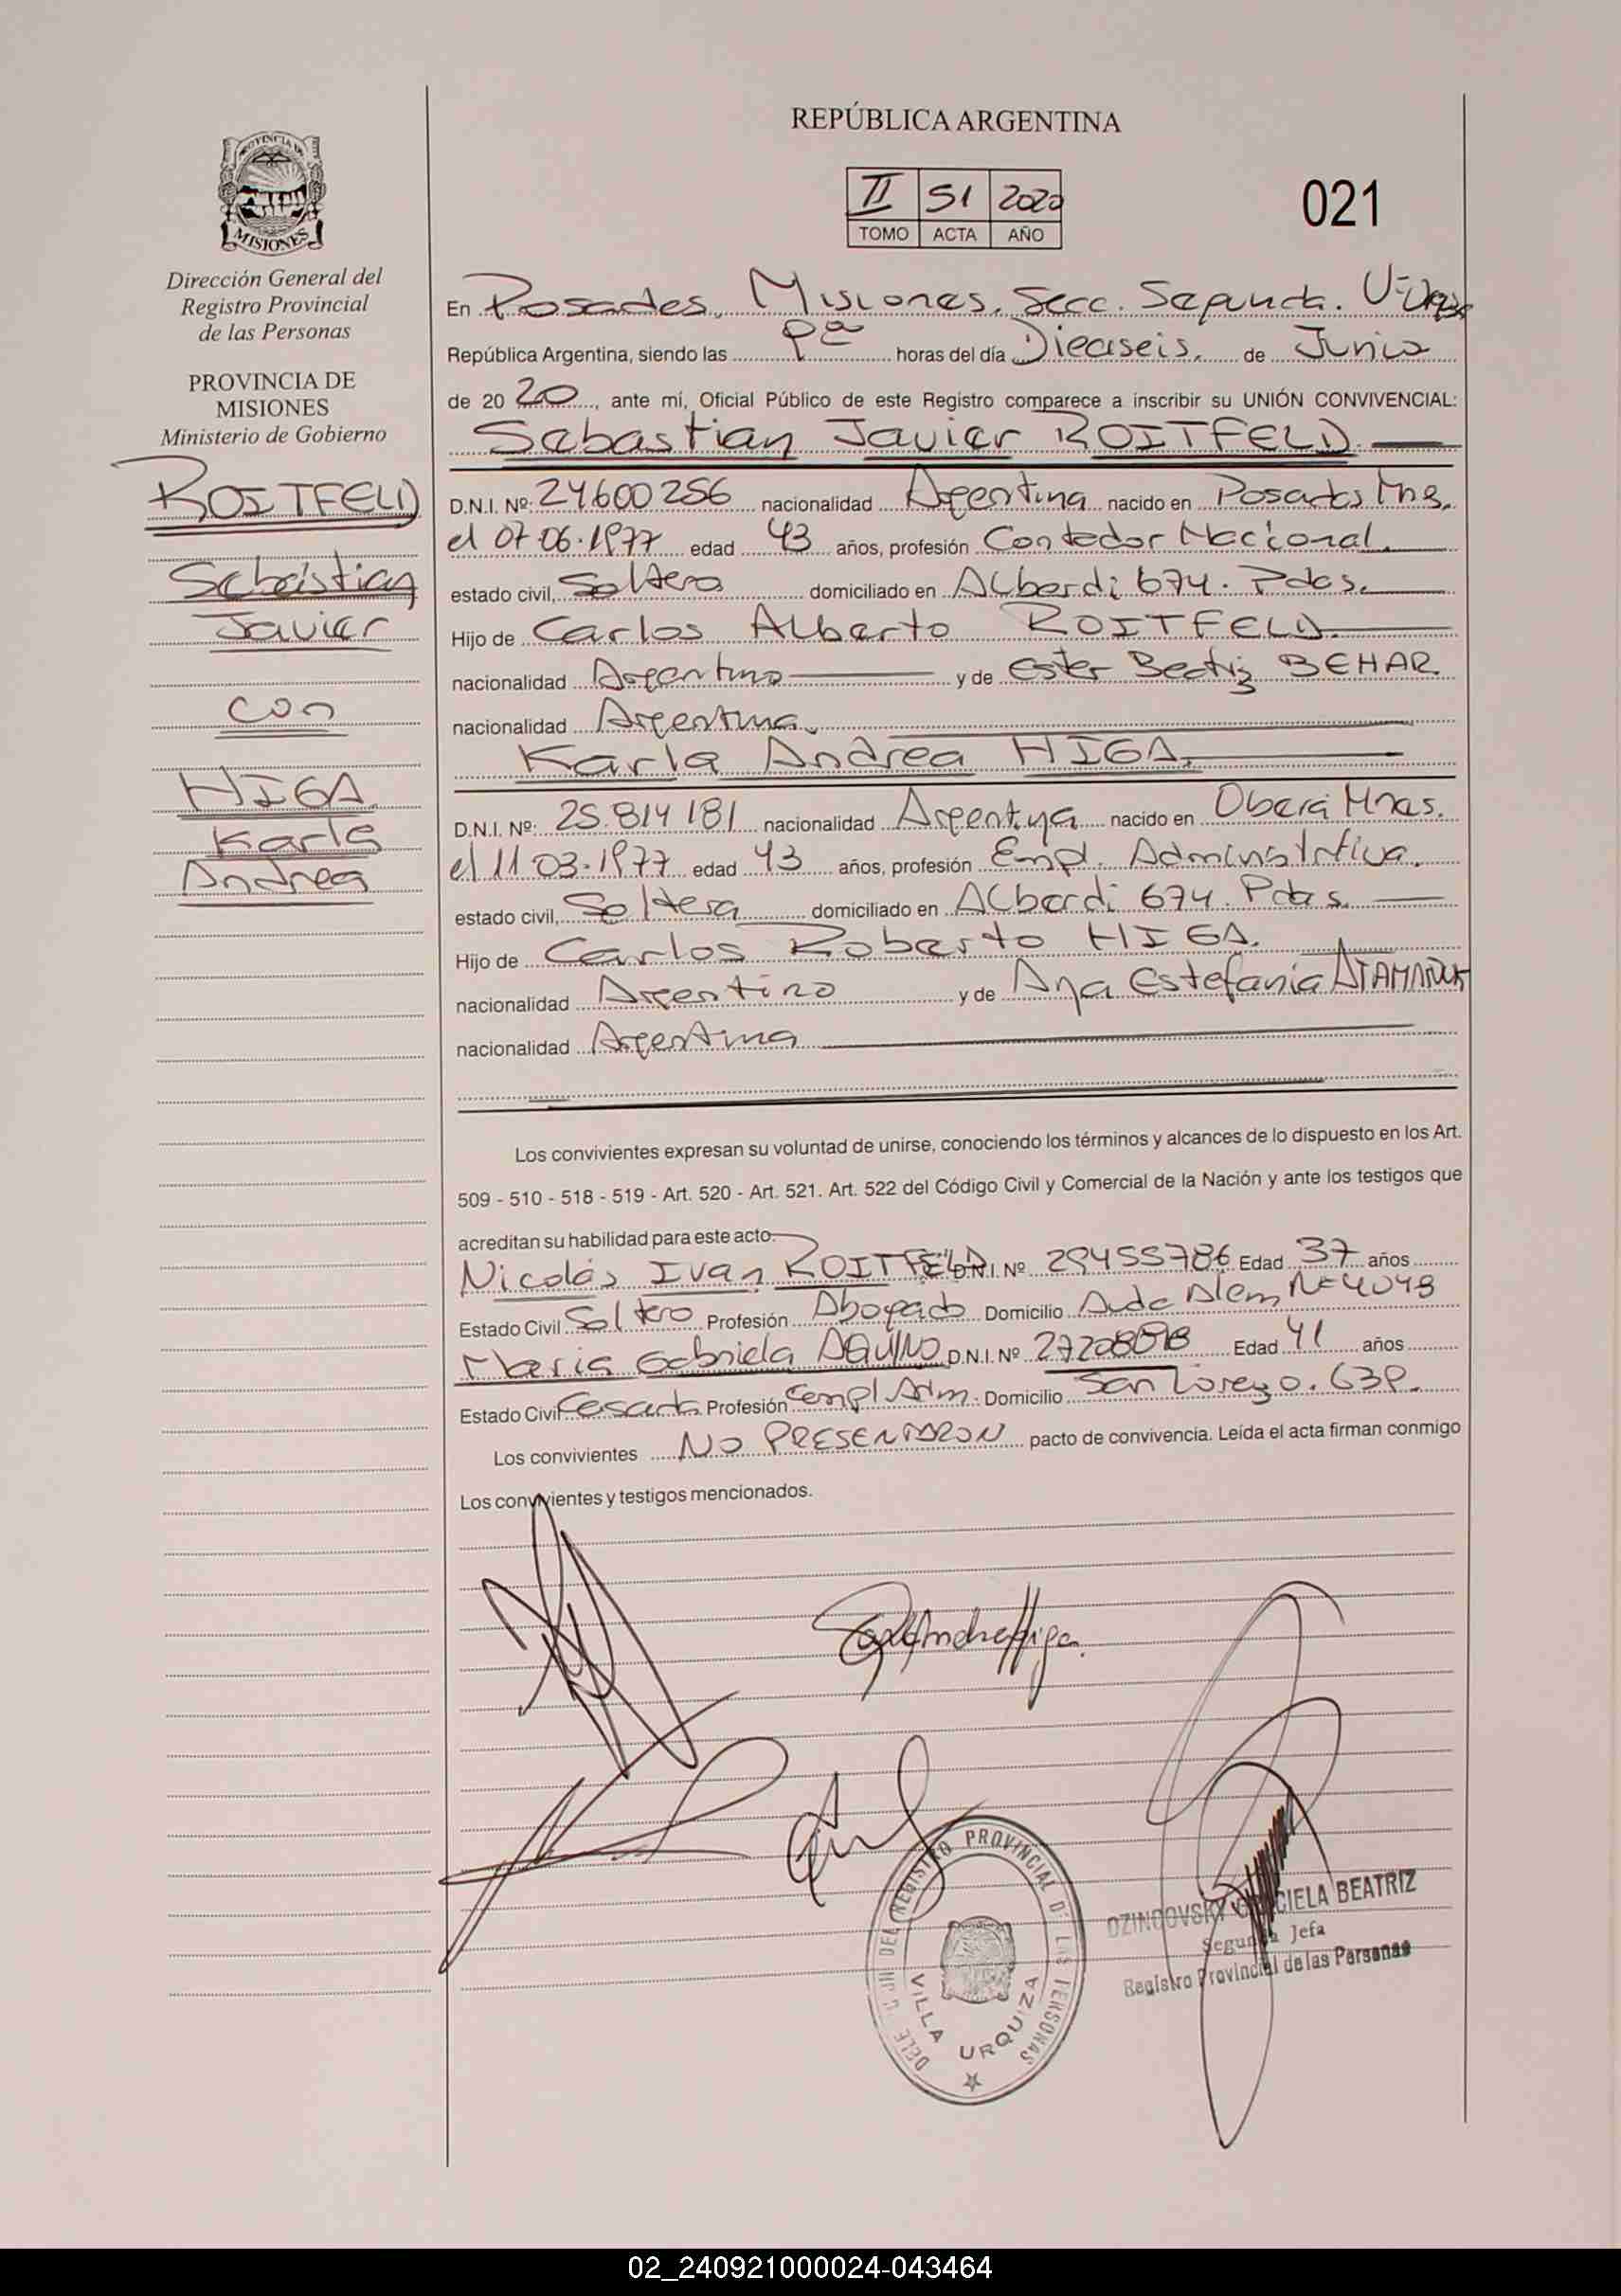 REPÚBLICA ARGENTINA
II 51 2020
TOMO ACTA AÑO
021
PROVINCIA DE
MISIONES
Dirección General del
Registro Provincial
de las Personas
PROVINCIA DE
MISIONES
Ministerio de Gobierno
ROITFELD
Sebastian
Javier
con
HIGA
Karla
Andrea
En Posadas, Misiones, Secc. Segunda.
República Argentina, siendo las horas del día Dieciseis, de Junio
de 20 20, ante mí, Oficial Público de este Registro comparece a inscribir su UNIÓN CONVIVENCIAL:
Sebastian Javier ROITFELD.
D.N.I. Nº: 24.600 256 nacionalidad Argentina nacido en Posadas Mns.
el 07-06-1977 edad 43 años, profesión Contador Nacional.
estado civil, Soltero domiciliado en Alberdi 674. Pdas.
Hijo de Carlos Alberto ROITFELD.
nacionalidad Argentino y de Ester Beatriz BEHAR
nacionalidad Argentina.
Karla Andrea HIGA.
D.N.I. Nº: 25.814 181 nacionalidad Argentina nacido en Oberá Mnes.
el 11-03-1977 edad 43 años, profesión Empl. Administrativa.
estado civil, Soltera domiciliado en Alberdi 674. Pdas.
Hijo de Carlos Roberto HIGA.
nacionalidad Argentino y de Ana Estefania ATAMAÑUK
nacionalidad Argentina
Los convivientes expresan su voluntad de unirse, conociendo los términos y alcances de lo dispuesto en los Art.
509 - 510 - 518 - 519 - Art. 520 - Art. 521. Art. 522 del Código Civil y Comercial de la Nación y ante los testigos que
acreditan su habilidad para este acto.
Nicolás Ivan ROITFELD D.N.I. Nº 29455786 Edad 37 años
Estado Civil Soltero Profesión Abogado Domicilio Avda Alem Nº 4048
Maria Gabriela AQUINO D.N.I. Nº Edad 41 años
Estado Civil Casada Profesión Empl Adm. Domicilio San Lorenzo.
Los convivientes NO PRESENTARON pacto de convivencia. Leída el acta firman conmigo
Los convivientes y testigos mencionados.
DEL REGISTRO PROVINCIAL DE LAS PERSONAS
VILLA URQUIZA
BEATRIZ
Segunda Jefa
Registro Provincial de las Personas
02_240921000024-043464